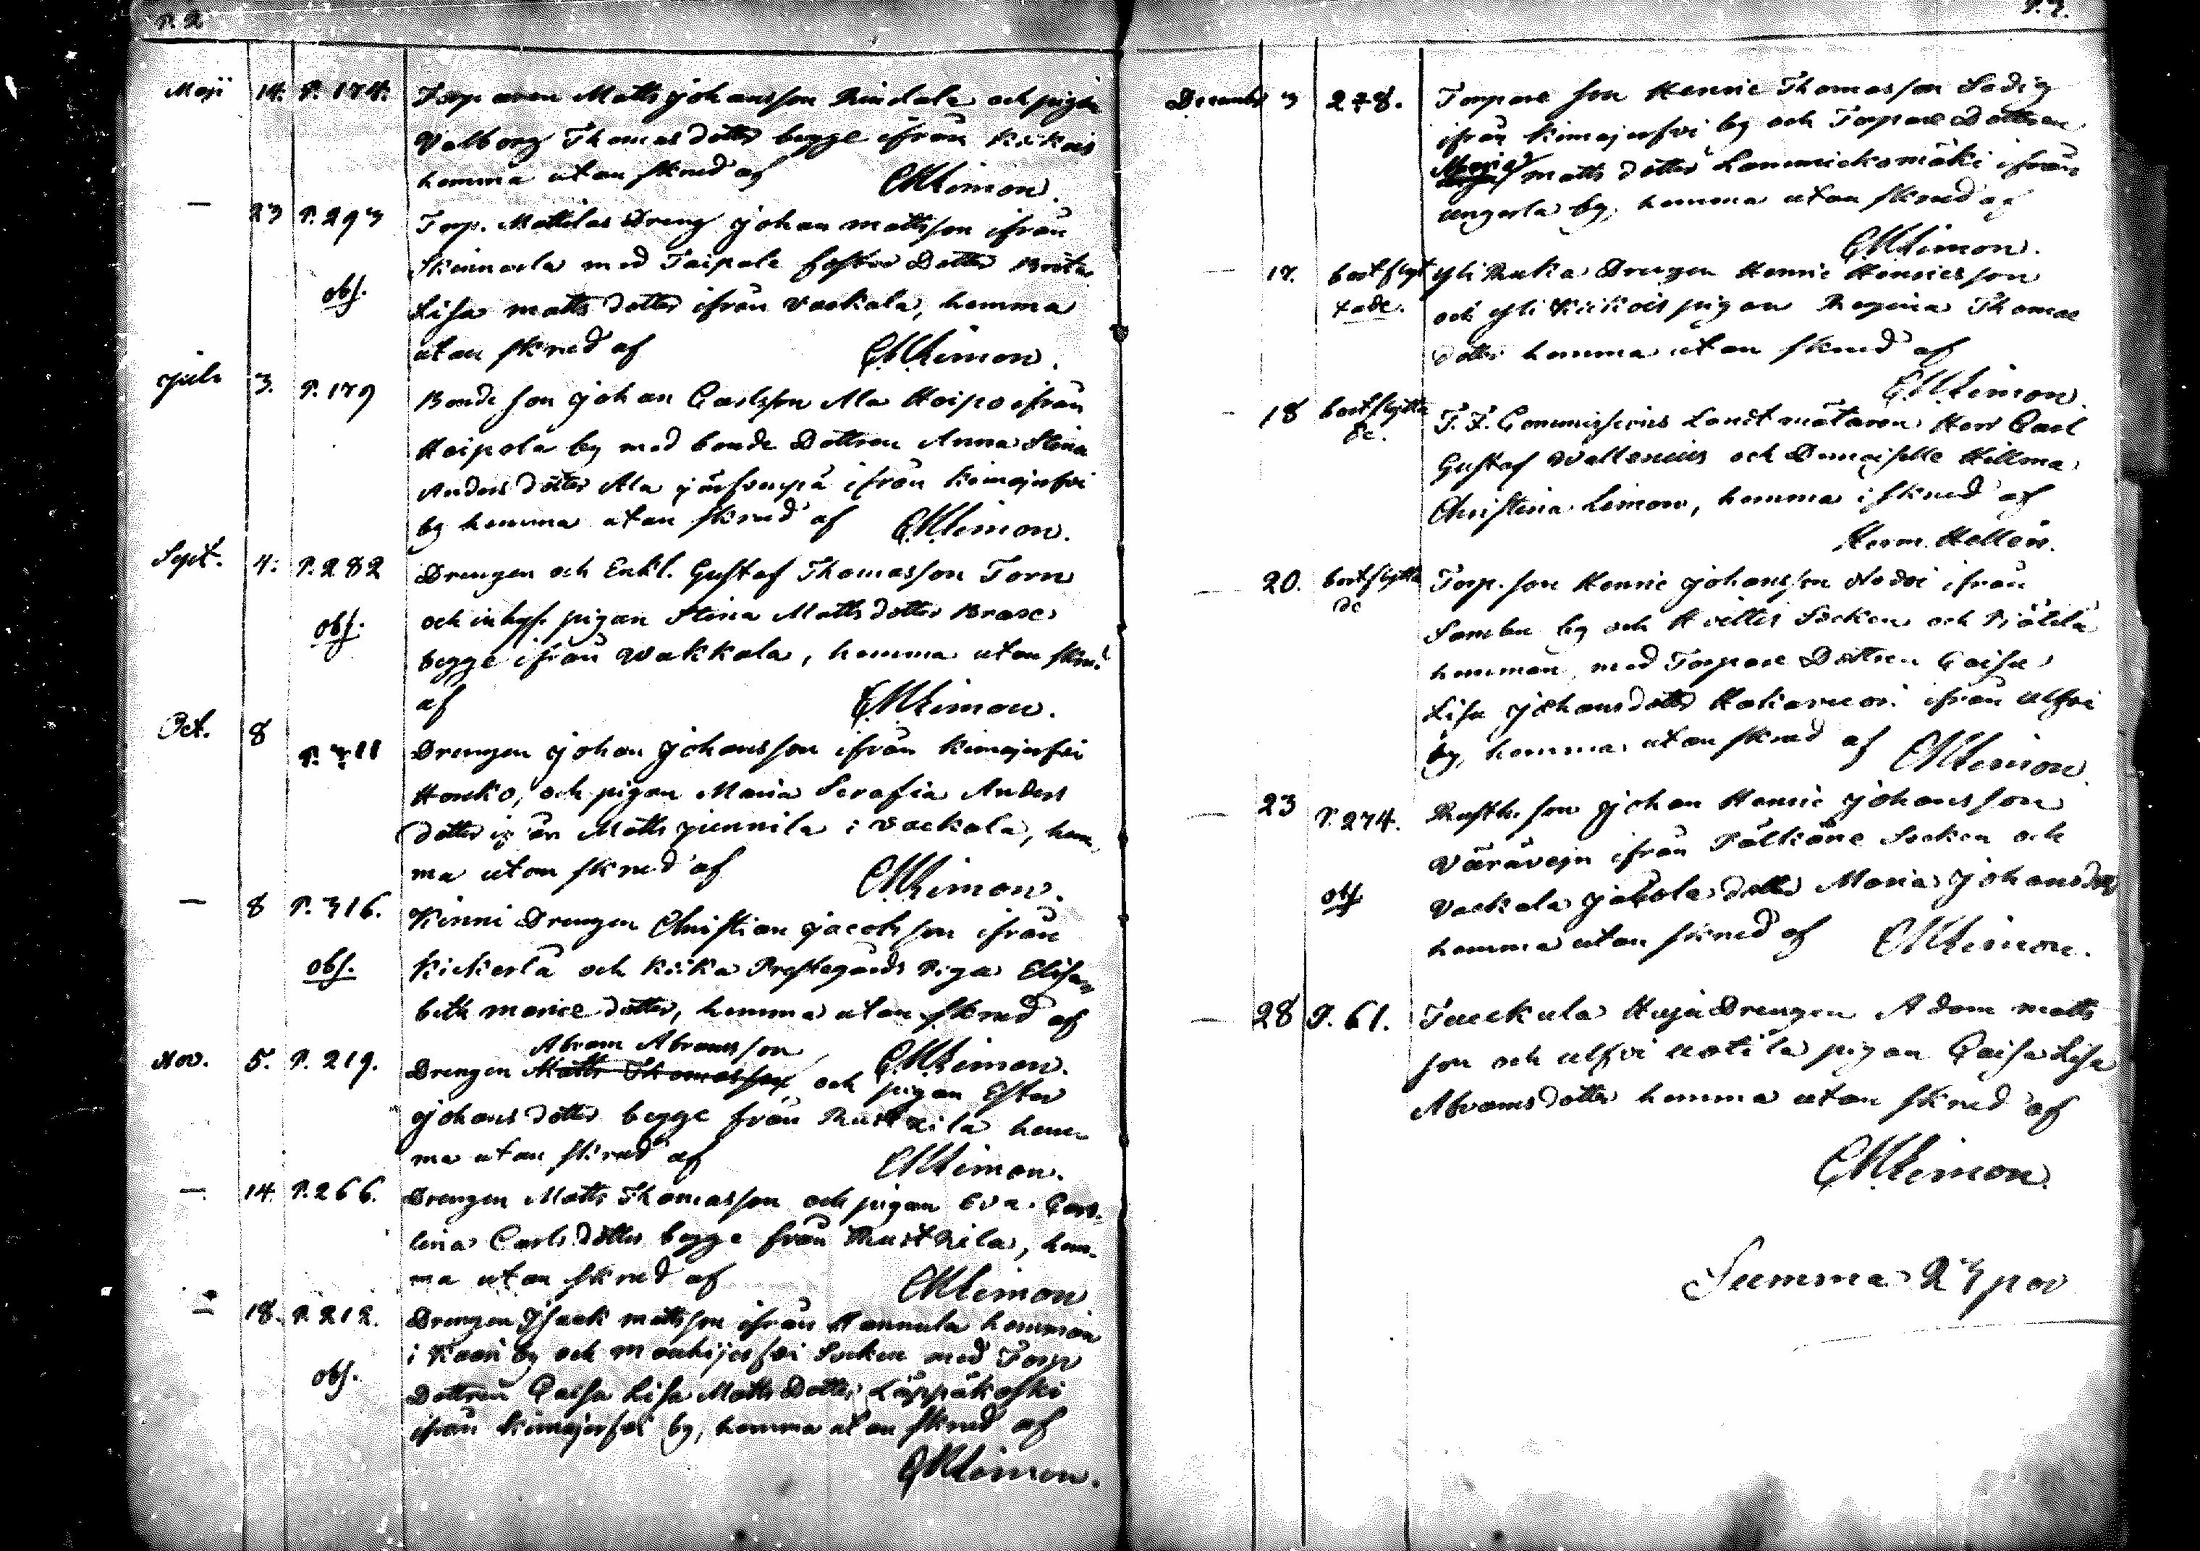 P. 2
Maji 14. P. 174. Torparen Matts Johansson Rindala och pigan
Valborg Thomasdotter begge ifrån Kickois
hemma utan skrud af CMLimon.
— 23 P. 293 Torp. Mattilas Dreng Johan Mattsson ifrån
obs. med Taipale foster Dotter Brita
Lisa Matts dotter ifrån Vackala, hemma
utan skrud af CMLimon.
Juli 3. P. 179 Bonde son Johan Carlsson Ala Hoipo ifrån
Hoipola by med bonde Dottren Anna Stina
Anders dotter Ala ifrån Kimajerfvi
by hemma utan skrud af CMLimon.
Sept. 4. P. 282 Drengen och Enkl. Gustaf Thomasson Torn
obs. och inhys. pigan Stina Matts dotter Brase
begge ifrån Wakkala, hemma utan skrud
af CMLimon.
Oct. 8 P. 311 Drengen Johan Johansson ifrån Kimajerfvi
Honko, och pigan Maria Serafia Anders
dotter ifrån Matts i Vackala, hem
ma utan skrud af CMLimon.
— 8 P. 316. Kinni Drengen Christian Jacobsson ifrån
obs. Kickerlä och Prestegårds Piga Elisa
beth dotter, hemma utan skrud af
CMLimon.
Abram Abramsson
Nov. 5. P. 219. Drengen Matts Thomasson och pigan Ester
Johans dotter begge från hem
ma utan skrud af CMLimon.
— 14. P. 266. Drengen Matts Thomasson och pigan Eva Caro-
lina Carls dotter begge från hem-
ma utan skrud af CMLimon
— 18. P. 212. Drengen Isack Mattsson ifrån Hannula hemman
i by och Mouhijerfvi Socken med Torp
obs. Dottren Caisa Lisa Matts Dotter Läppäkoski
ifrån Kimajerfvi by, hemma utan skrud af
CMLimon.
P. 3.
December 3 278. Torpare son Henric Thomasson Sadig
ifrån Kimajerfvi by och Torpare Dottren
Maria Matts dotter Lammickomäki ifrån
Ungerla by, hemma utan skrud af
CMLimon.
— 17. bortflyt Yli Ruka Drengen Henric Henricsson
tade. och Yli Kickois pigan Regina Thomas
dotter hemma utan skrud af
CMLimon
— 18 bortflytta T. F. Commissions Landtmätaren Herr Carl
de. Gustaf Wallenius och Demoiselle Hillma
Christina Limon, hemma i skrud af
Herm. Hellén.
— 20. bortflytta Torp. son Henric Johansson ifrån
de Sambu by och Hvittis Socken och
hemman, med Torpare Dottren Caisa
Lisa Johansdotter Hakavuori ifrån Ulfvi
by, hemma utan skrud af CMLimon
— 23 P. 274. Rusth. son Johan Henric Johansson
ifrån Pälkäne Socken och
obs. Vackala Jacola dotter Maria Johansdotter
hemma utan skrud af CMLimon.
— 28 P. 61. Huja Drengen Adam Matts
son och Ulfvi Uotila pigan Caisa Lisa
Abramsdotter hemma utan skrud af
CMLimon.
Summa 23 par